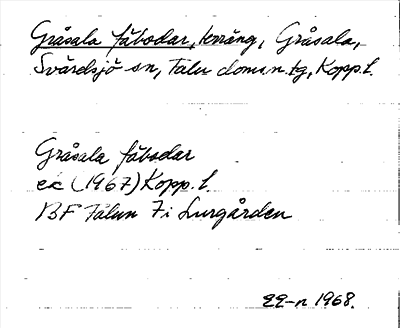 Gråsala fäbodar, terräng, Gråsala,
Svärdsjö sn, Falu doms.n tg, Kopp.l.
Gråsala fäbodar
ek (1967) Kopp.l.
BF Falun 7i Lurgården
EE-n 1968.